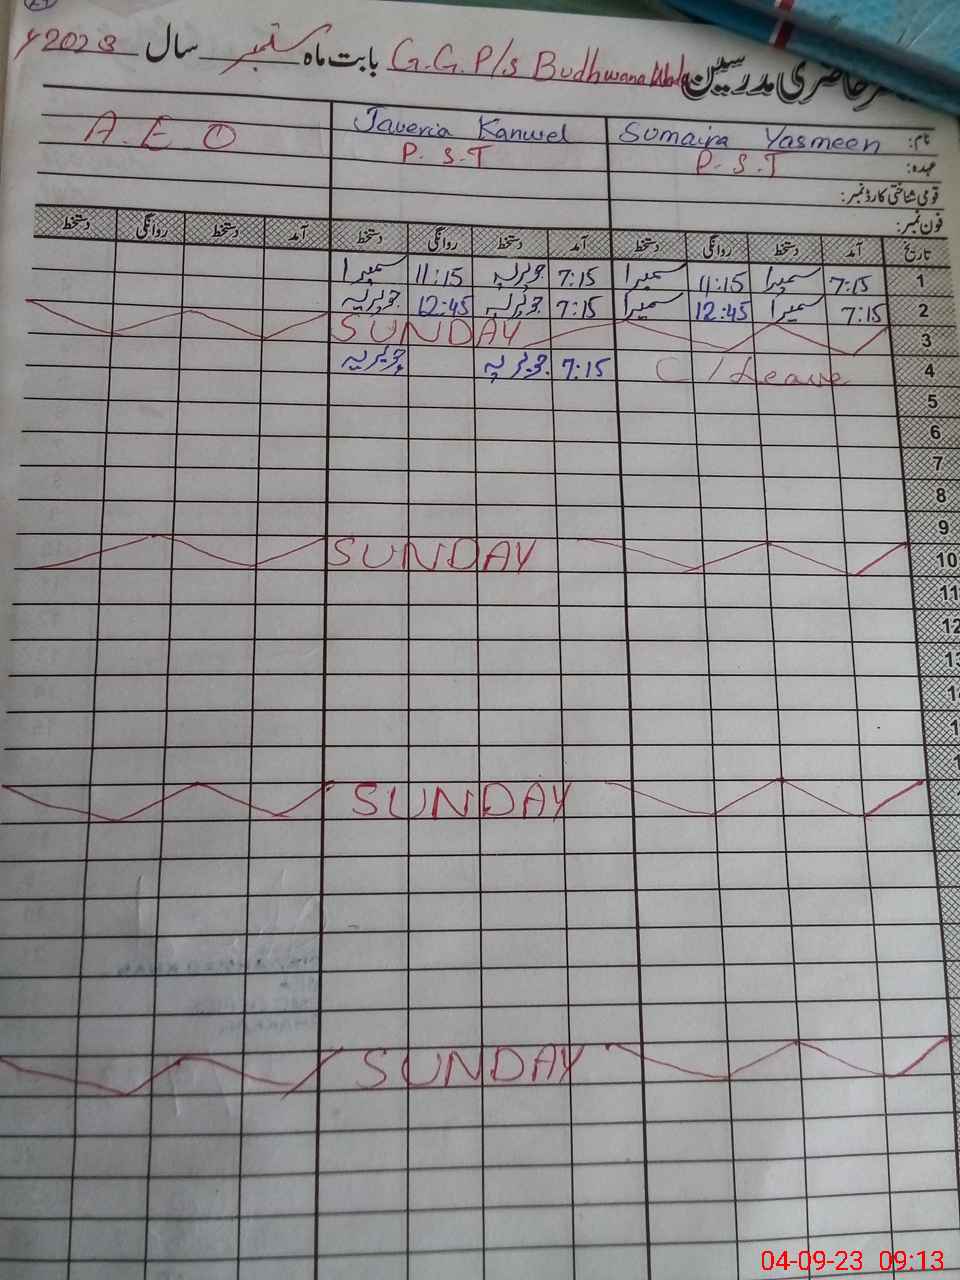 حاضری مدرسین G.G.P/s Budhwana Wala بابت ماہ ستمبر سال 2023ء
نام: Sumaira Yasmeen Javeria Kanwel A.E.O
عہدہ: P.S.T P.S.T
قومی شناختی کارڈ نمبر:
فون نمبر:
تاریخ آمد دستخط روانگی دستخط آمد دستخط روانگی دستخط آمد دستخط روانگی دستخط
1 7:15 سمیرا 11:15 سمیرا 7:15 جویریہ 11:15 سمیرا
2 7:15 سمیرا 12:45 سمیرا 7:15 جویریہ 12:45 جویریہ
3 SUNDAY
4 C/Leave 7:15 جویریہ جویریہ
5
6
7
8
9
10 SUNDAY
11
12
SUNDAY
SUNDAY
04-09-23 09:13